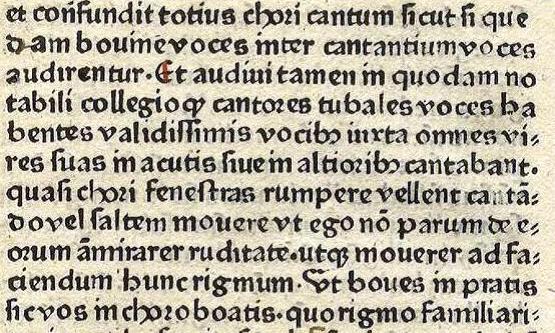 et confundit totius chori cantum sicut si que
dam bouine voces inter cantantium voces
audirentur. Et audiui tamen in quodam no
tabili collegio qꝫ cantores tubales voces ha
bentes validissimis vocibꝫ iuxta omnes vi⸗
res suas in acutis siue in altioribꝫ cantabant.
quasi chori fenestras rumpere vellent cantā⸗
do vel saltem mouere vt ego nō parum de e⸗
orum āmirarer ruditate. utqꝫ mouerer ad fa⸗
ciendum hunc rigmum. Ut boues in pratis
sic vos in choro boatis. quo rigmo familiari⸗